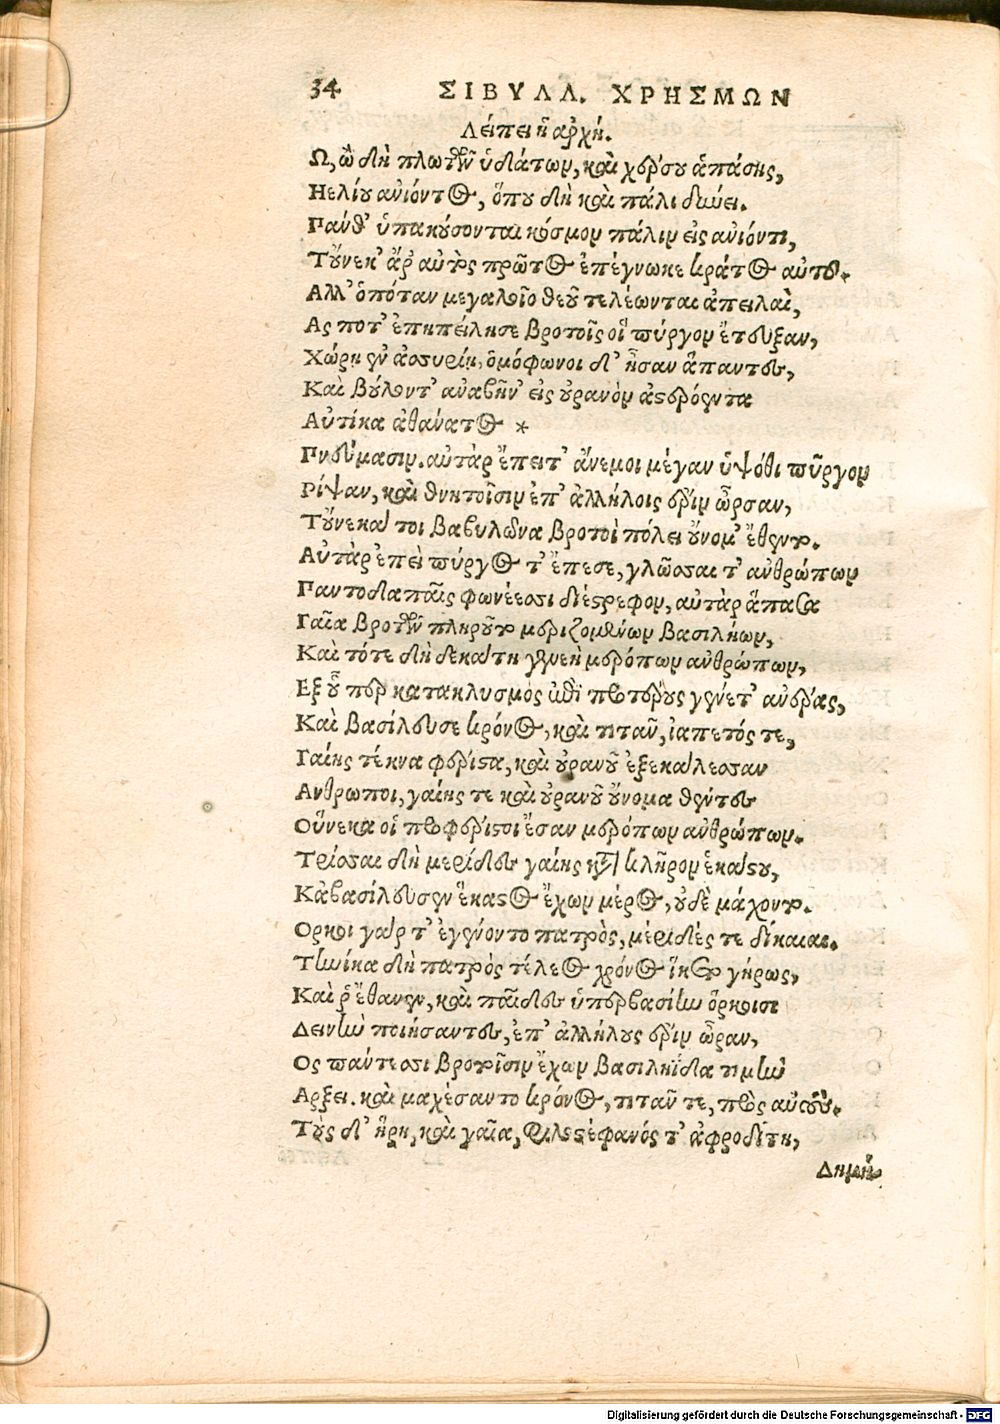 34 ΣΙΒΥΛΛ. ΧΡΗΣΜΩΝ
Λείπει ἡ ἀρχή.
Ω, ὢ δὴ πλωτῶν ὑδάτων, καὶ χέρσου ἁπάσης,
Ηελίου ἀνιόντος, ὅπου δὴ καὶ πάλι δύνει.
Πάνθ' ὑπακούσονται κόσμον πάλιν εἰς ἀνιόντι,
Τοὔνεκ' ἄρ' αὐτὸς πρῶτος ἐπέγνωκε κράτος αὐτοῦ.
Αλλ' ὁπόταν μεγαλοῖο θεοῦ τελέωνται ἀπειλαὶ,
Ας ποτ' ἐπηπείλησε βροτοῖς οἳ πύργον ἔτευξαν,
Χώρῃ ἐν ἀσσυρίῃ, ὁμόφωνοι δ' ἦσαν ἅπαντες,
Καὶ βούλοντ' ἀναβῆν' εἰς οὐρανὸν ἀστερόεντα
Αὐτίκα ἀθάνατος *
Πνεύμασιν. αὐτὰρ ἔπειτ' ἄνεμοι μέγαν ὑψόθι πῦργον
Ρίψαν, καὶ θνητοῖσιν ἐπ' ἀλλήλοις ἔριν ὦρσαν,
Τοὔνεκά τοι βαβυλῶνα βροτοὶ πόλει οὔνομ' ἔθεντο.
Αὐτὰρ ἐπεὶ πύργος τ' ἔπεσε, γλῶσσαι τ' ἀνθρώπων
Παντοδαπαῖς φωνέεσσι διέστρεφον, αὐτὰρ ἅπασα
Γαῖα βροτῶν πληροῦτο μεριζομένων βασιλήων,
Καὶ τότε δὴ δεκάτη γενεὴ μερόπων ἀνθρώπων,
Εξ οὗ περ κατακλυσμὸς ἐπὶ προτέρους γένετ' ἄνδρας,
Καὶ βασίλευσε κρόνος, καὶ τιτὰν, ἰαπετός τε,
Γαίης τέκνα φέριστα, καὶ οὐρανοῦ ἐξεκάλεσσαν
Ανθρωποι, γαίης τε καὶ οὐρανοῦ οὔνομα θέντες
Οὕνεκα οἱ προφέριστοι ἔσαν μερόπων ἀνθρώπων.
Τρίσσαι δὴ μερίδες γαίης κατὰ κλῆρον ἑκάστου,
Κἀβασίλευσεν ἕκαστος ἔχων μέρος, οὐδὲ μάχοντο.
Ορκοι γάρ τ' ἐγένοντο πατρὸς, μερίδές τε δίκαιαι.
Τηνίκα δὴ πατρὸς τέλεος χρόνος ἵκετο γήρως,
Καί ῥ' ἔθανεν, καὶ παῖδες ὑπερβασίην ὅρκοισι
Δεινὴν ποιήσαντες, ἐπ' ἀλλήλους ἔριν ὦραν,
Ος πάντεσσι βροτοῖσιν ἔχων βασιληΐδα τιμὴν
Αρξει. καὶ μαχέσαντο κρόνος, τιτάν τε, πρὸς αὑτούς.
Τοὺς δ' ἥρη, καὶ γαῖα, φιλοστέφανός τ' ἀφροδίτη,
Δημή-
Digitalisierung gefördert durch die Deutsche Forschungsgemeinschaft - DFG